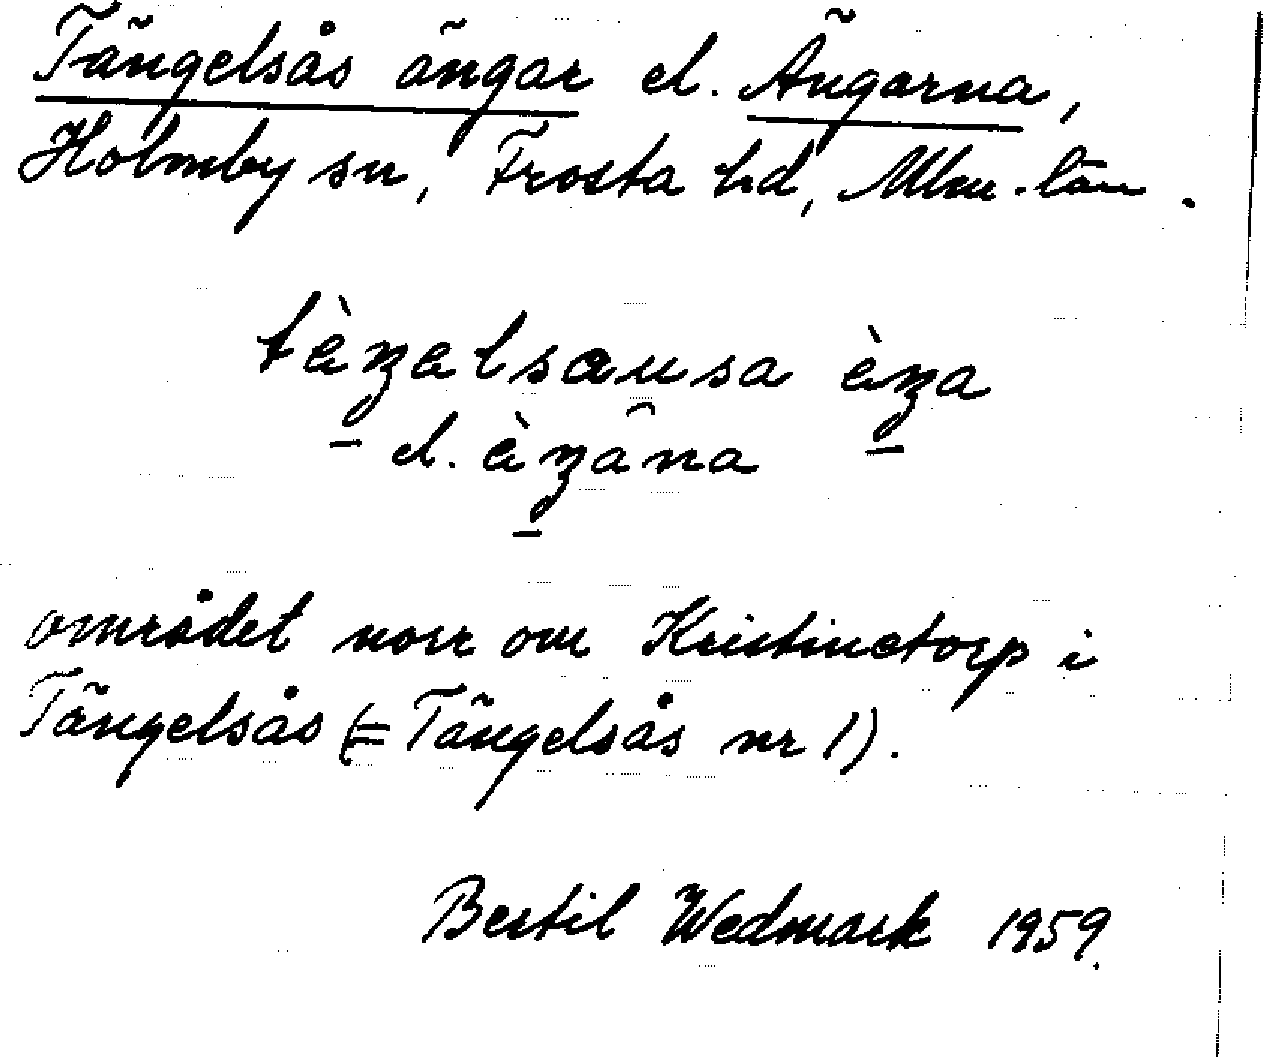 Tängelsås ängar el. Ängarna,
Holmby sn, Frosta hd, Mlm. län.
tèŋalsausa èŋa
el. èŋâna
området norr om Kristinetorp i
Tängelsås (= Tängelsås nr 1).
Bertil Wedmark 1959.